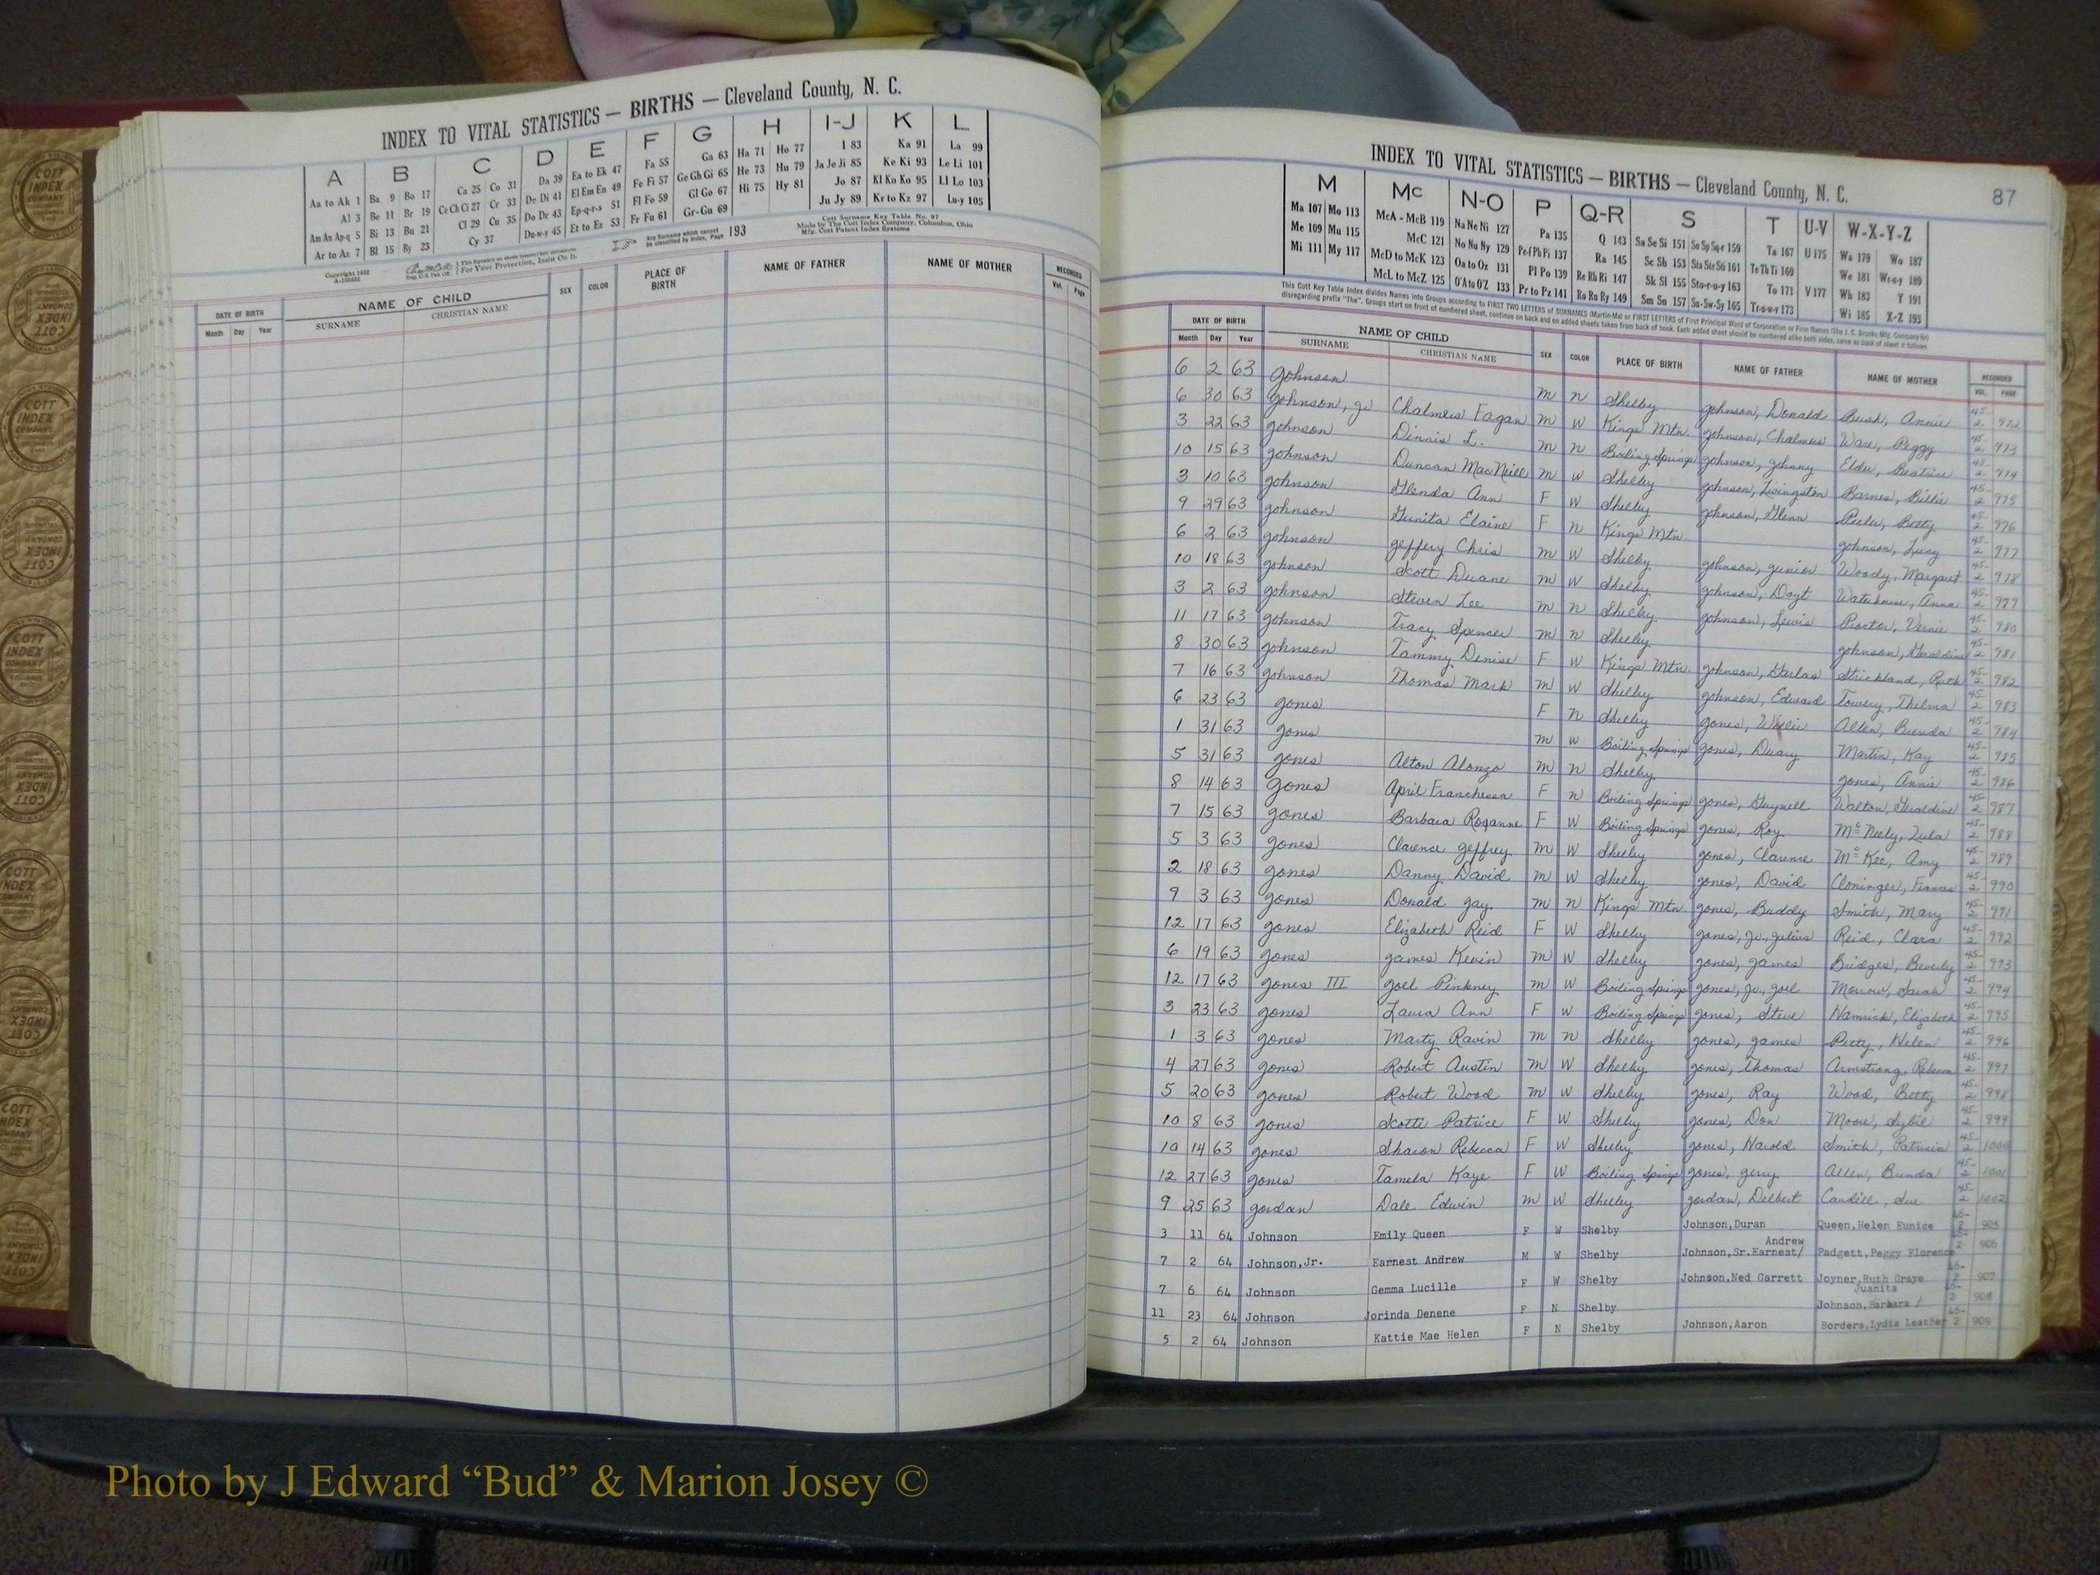 INDEX TO VITAL STATISTICS — BIRTHS — Cleveland County, N. C.
A B C D E F G H I-J K L
Aa to Ak 1 Ba 9 Bo 17 Ca 25 Co 31 Da 39 Ea to Ek 47 Fa 55 Ga 63 Ha 71 Ho 77 I 83 Ka 91 La 99
Al 3 Be 11 Br 19 Ce Ch Ci 27 Cr 33 De Di 41 El Em En 49 Fe Fi 57 Ge Gh Gi 65 He 73 Hu 79 Ja Je Ji 85 Ke Ki 93 Le Li 101
Am An Ap-q 5 Bi 13 Bu 21 Cl 29 Cu 35 Do Dr 43 Ep-q-r-s 51 Fl Fo 59 Gl Go 67 Hi 75 Hy 81 Jo 87 Kl Kn Ko 95 Ll Lo 103
Ar to Az 7 Bl 15 By 23 Cy 37 Du-w-y 45 Et to Ez 53 Fr Fu 61 Gr-Gu 69 Ju Jy 89 Kr to Kz 97 Lu-y 105
Any Surname which cannot be classified by Index, Page 193
Cott Surname Key Table No. 97
Made by The Cott Index Company, Columbus, Ohio
Mfg. Cott Patent Index Systems
For Your Protection, Insist On It.
DATE OF BIRTH NAME OF CHILD SEX COLOR PLACE OF BIRTH NAME OF FATHER NAME OF MOTHER RECORDED
Month Day Year SURNAME CHRISTIAN NAME Vol. Page
INDEX TO VITAL STATISTICS — BIRTHS — Cleveland County, N. C.
87
M Mc N-O P Q-R S T U-V W-X-Y-Z
Ma 107 Mo 113 McA - McB 119 Na Ne Ni 127 Pa 135 Q 143 Sa Se Si 151 So Sp Sq-r 159 Ta 167 U 175 Wa 179 Wo 187
Me 109 Mu 115 McC 121 No Nu Ny 129 Pe-f Ph Pi 137 Ra 145 Sc Sh 153 Sta Ste Sti 161 Te Th Ti 169 We 181 Wr-u-y 189
Mi 111 My 117 McD to McK 123 Oa to Oz 131 Pl Po 139 Re Rh Ri 147 Sk Sl 155 Sto-r-u-y 163 To 171 V 177 Wh 183 Y 191
McL to McZ 125 O'A to O'Z 133 Pr to Pz 141 Ro Ru Ry 149 Sm Sn 157 Su-Sw-Sy 165 Tr-u-w-y 173 Wi 185 X-Z 193
DATE OF BIRTH NAME OF CHILD SEX COLOR PLACE OF BIRTH NAME OF FATHER NAME OF MOTHER RECORDED
Month Day Year SURNAME CHRISTIAN NAME VOL. PAGE
6 2 63 Johnson M N Shelby Johnson, Donald Annie 45-2 972
6 30 63 Johnson, Jr. Chalmers Fagan M W Kings Mtn. Johnson, Chalmers Ware, Peggy 45-2 973
3 22 63 Johnson Dinnis L. M N Boiling Springs Johnson, Johnny Elder, Beatrice 45-2 974
10 15 63 Johnson Duncan MacNeill M W Shelby Johnson, Livingston Barnes, Billie 45-2 975
3 10 63 Johnson Glenda Ann F W Shelby Johnson, Glenn Peeler, Betty 45-2 976
9 29 63 Johnson Elaine F N Kings Mtn. Johnson, Lucy 45-2 977
6 2 63 Johnson Jeffery Chris M W Shelby Johnson, Junior Woody, Margaret 45-2 978
10 18 63 Johnson Scott Duane M W Shelby Johnson, Anna 45-2 979
3 2 63 Johnson Steven Lee M N Shelby Johnson, Lewis Proctor, Vernie 45-2 980
11 17 63 Johnson Tracy Spencer M N Shelby Johnson, Geraldine 45-2 981
8 30 63 Johnson Tammy Denise F W Kings Mtn. Johnson, Strickland, Ruth 45-2 982
7 16 63 Johnson Thomas Mark M W Shelby Johnson, Edward Towery, Thelma 45-2 983
6 23 63 Jones F N Shelby Jones, Allen, Brenda 45-2 984
1 31 63 Jones M W Boiling Springs Jones, Martin, Kay 45-2 985
5 31 63 Jones Alton Alonzo M N Shelby Jones, Annie 45-2 986
8 14 63 Jones April Franchessa F N Boiling Springs Jones, Walton, Geraldine 45-2 987
7 15 63 Jones Barbara Roxanne F W Boiling Springs Jones, Roy McNeely, Zula 45-2 988
5 3 63 Jones Clarence Jeffrey M W Shelby Jones, Clarence McKee, Amy 45-2 989
2 18 63 Jones Danny David M W Shelby Jones, David Cloninger, Frances 45-2 990
9 3 63 Jones Donald Jay M N Kings Mtn. Jones, Buddy Smith, Mary 45-2 991
12 17 63 Jones Elizabeth Reid F W Shelby Jones, Jr., Julius Reid, Clara 45-2 992
6 19 63 Jones James Kevin M W Shelby Jones, James Bridges, Beverly 45-2 993
12 17 63 Jones III Joel Pinkney M W Boiling Springs Jones, Jr., Joel Morrow, Sarah 45-2 994
3 23 63 Jones Laura Ann F W Boiling Springs Jones, Steve Hamrick, Elizabeth 45-2 995
1 3 63 Jones Marty Ravin M N Shelby Jones, James Petty, Helen 45-2 996
4 27 63 Jones Robert Austin M W Shelby Jones, Thomas Armstrong, Rebecca 45-2 997
5 20 63 Jones Robert Wood M W Shelby Jones, Ray Wood, Betty 45-2 998
10 8 63 Jones Scotti Patrice F W Shelby Jones, Don Moore, Sybil 45-2 999
10 14 63 Jones Sharon Rebecca F W Shelby Jones, Harold Smith, Patricia 45-2 1000
12 27 63 Jones Tamela Kaye F W Boiling Springs Jones, Jerry Allen, Brenda 45-2 1001
9 25 63 Jordan Dale Edwin M W Shelby Jordan, Delbert Caudill, Sue 45-2 1002
3 11 64 Johnson Emily Queen F W Shelby Johnson,Duran Queen,Helen Eunice 46-2 905
7 2 64 Johnson,Jr. Earnest Andrew M W Shelby Johnson,Sr.Earnest/ Andrew Padgett,Peggy Florence 46-2 906
7 6 64 Johnson Gemma Lucille F W Shelby Johnson,Ned Garrett Joyner,Ruth Graye 46-2 907
11 23 64 Johnson Jorinda Denene F N Shelby Johnson,Barbara / Juanita 46-2 908
5 2 64 Johnson Kattie Mae Helen F N Shelby Johnson,Aaron Borders,Lydia Leather 46-2 909
Photo by J Edward “Bud” & Marion Josey ©